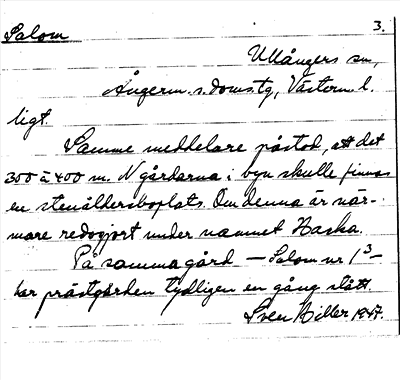 Salom 3.
Ullångers sn,
Ångerm. s. domstg, Västern. l.
ligt.
Samme meddelare påstod, att det
300 à 400 m. N gårdarna i byn skulle finnas
en stenåldersboplats. Om denna är när-
mare redogjort under namnet Haska.
På samma gård – Salom nr 1³ –
har prästgården tydligen en gång stått.
Sven Hiller 1947.